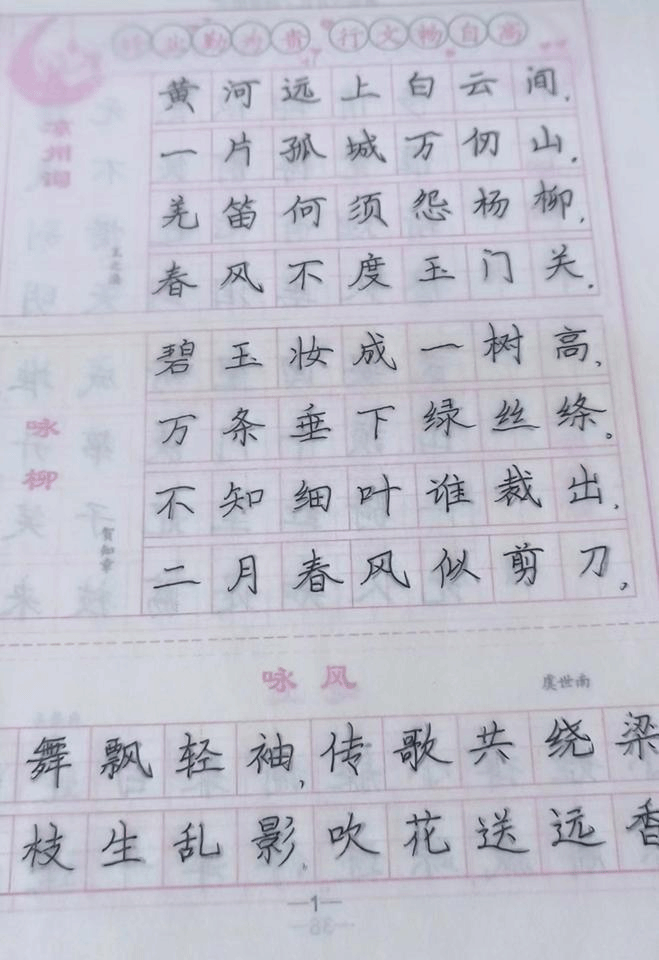 勤为贵 行文畅自高
凉州词
王之涣
黄河远上白云间，
一片孤城万仞山。
羌笛何须怨杨柳，
春风不度玉门关。
咏柳
贺知章
碧玉妆成一树高，
万条垂下绿丝绦。
不知细叶谁裁出，
二月春风似剪刀。
咏风
虞世南
舞飘轻袖，传歌共绕梁
枝生乱影，吹花送远香
1